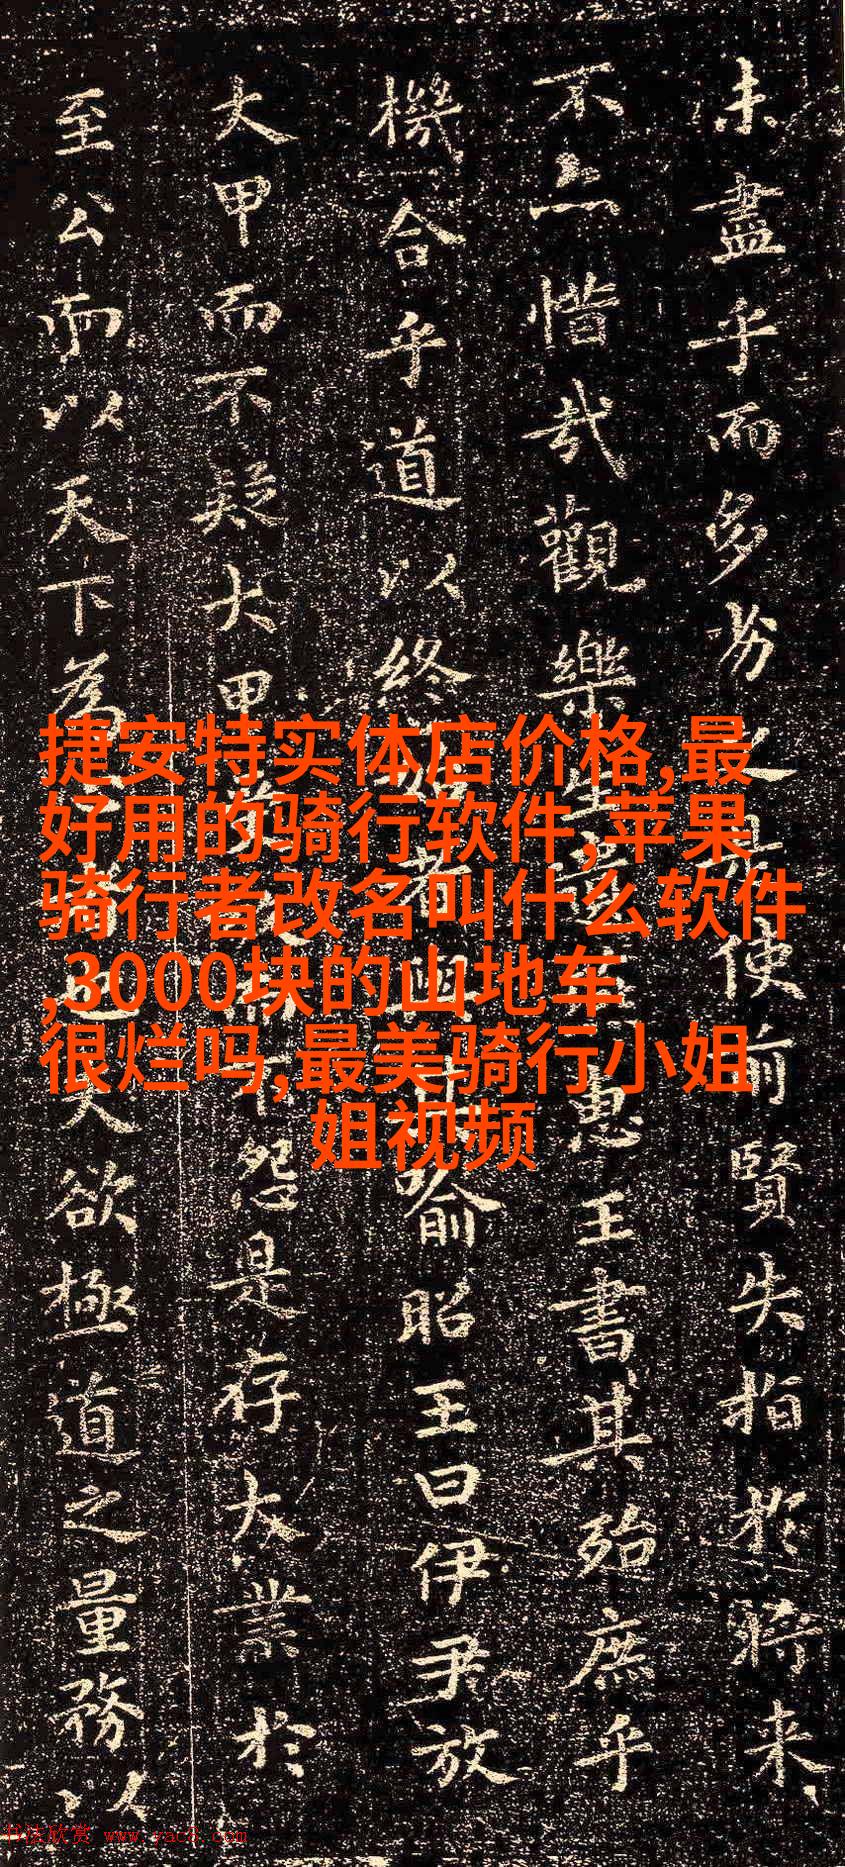 未盡乎而多劣之是使前賢失指於將来
不亦惜哉觀樂生遺燕惠王書其殆庶乎
機合乎道以終始者與其喻昭王曰伊尹放
大甲而不疑大甲受而不怨是存大業於
至公而以天下為者也夫欲極道之量務以
捷安特实体店价格,最
好用的骑行软件,苹果
骑行者改名叫什么软件
,3000块的山地车
很烂吗,最美骑行小姐
姐视频
书法欣赏 www.yac8.com